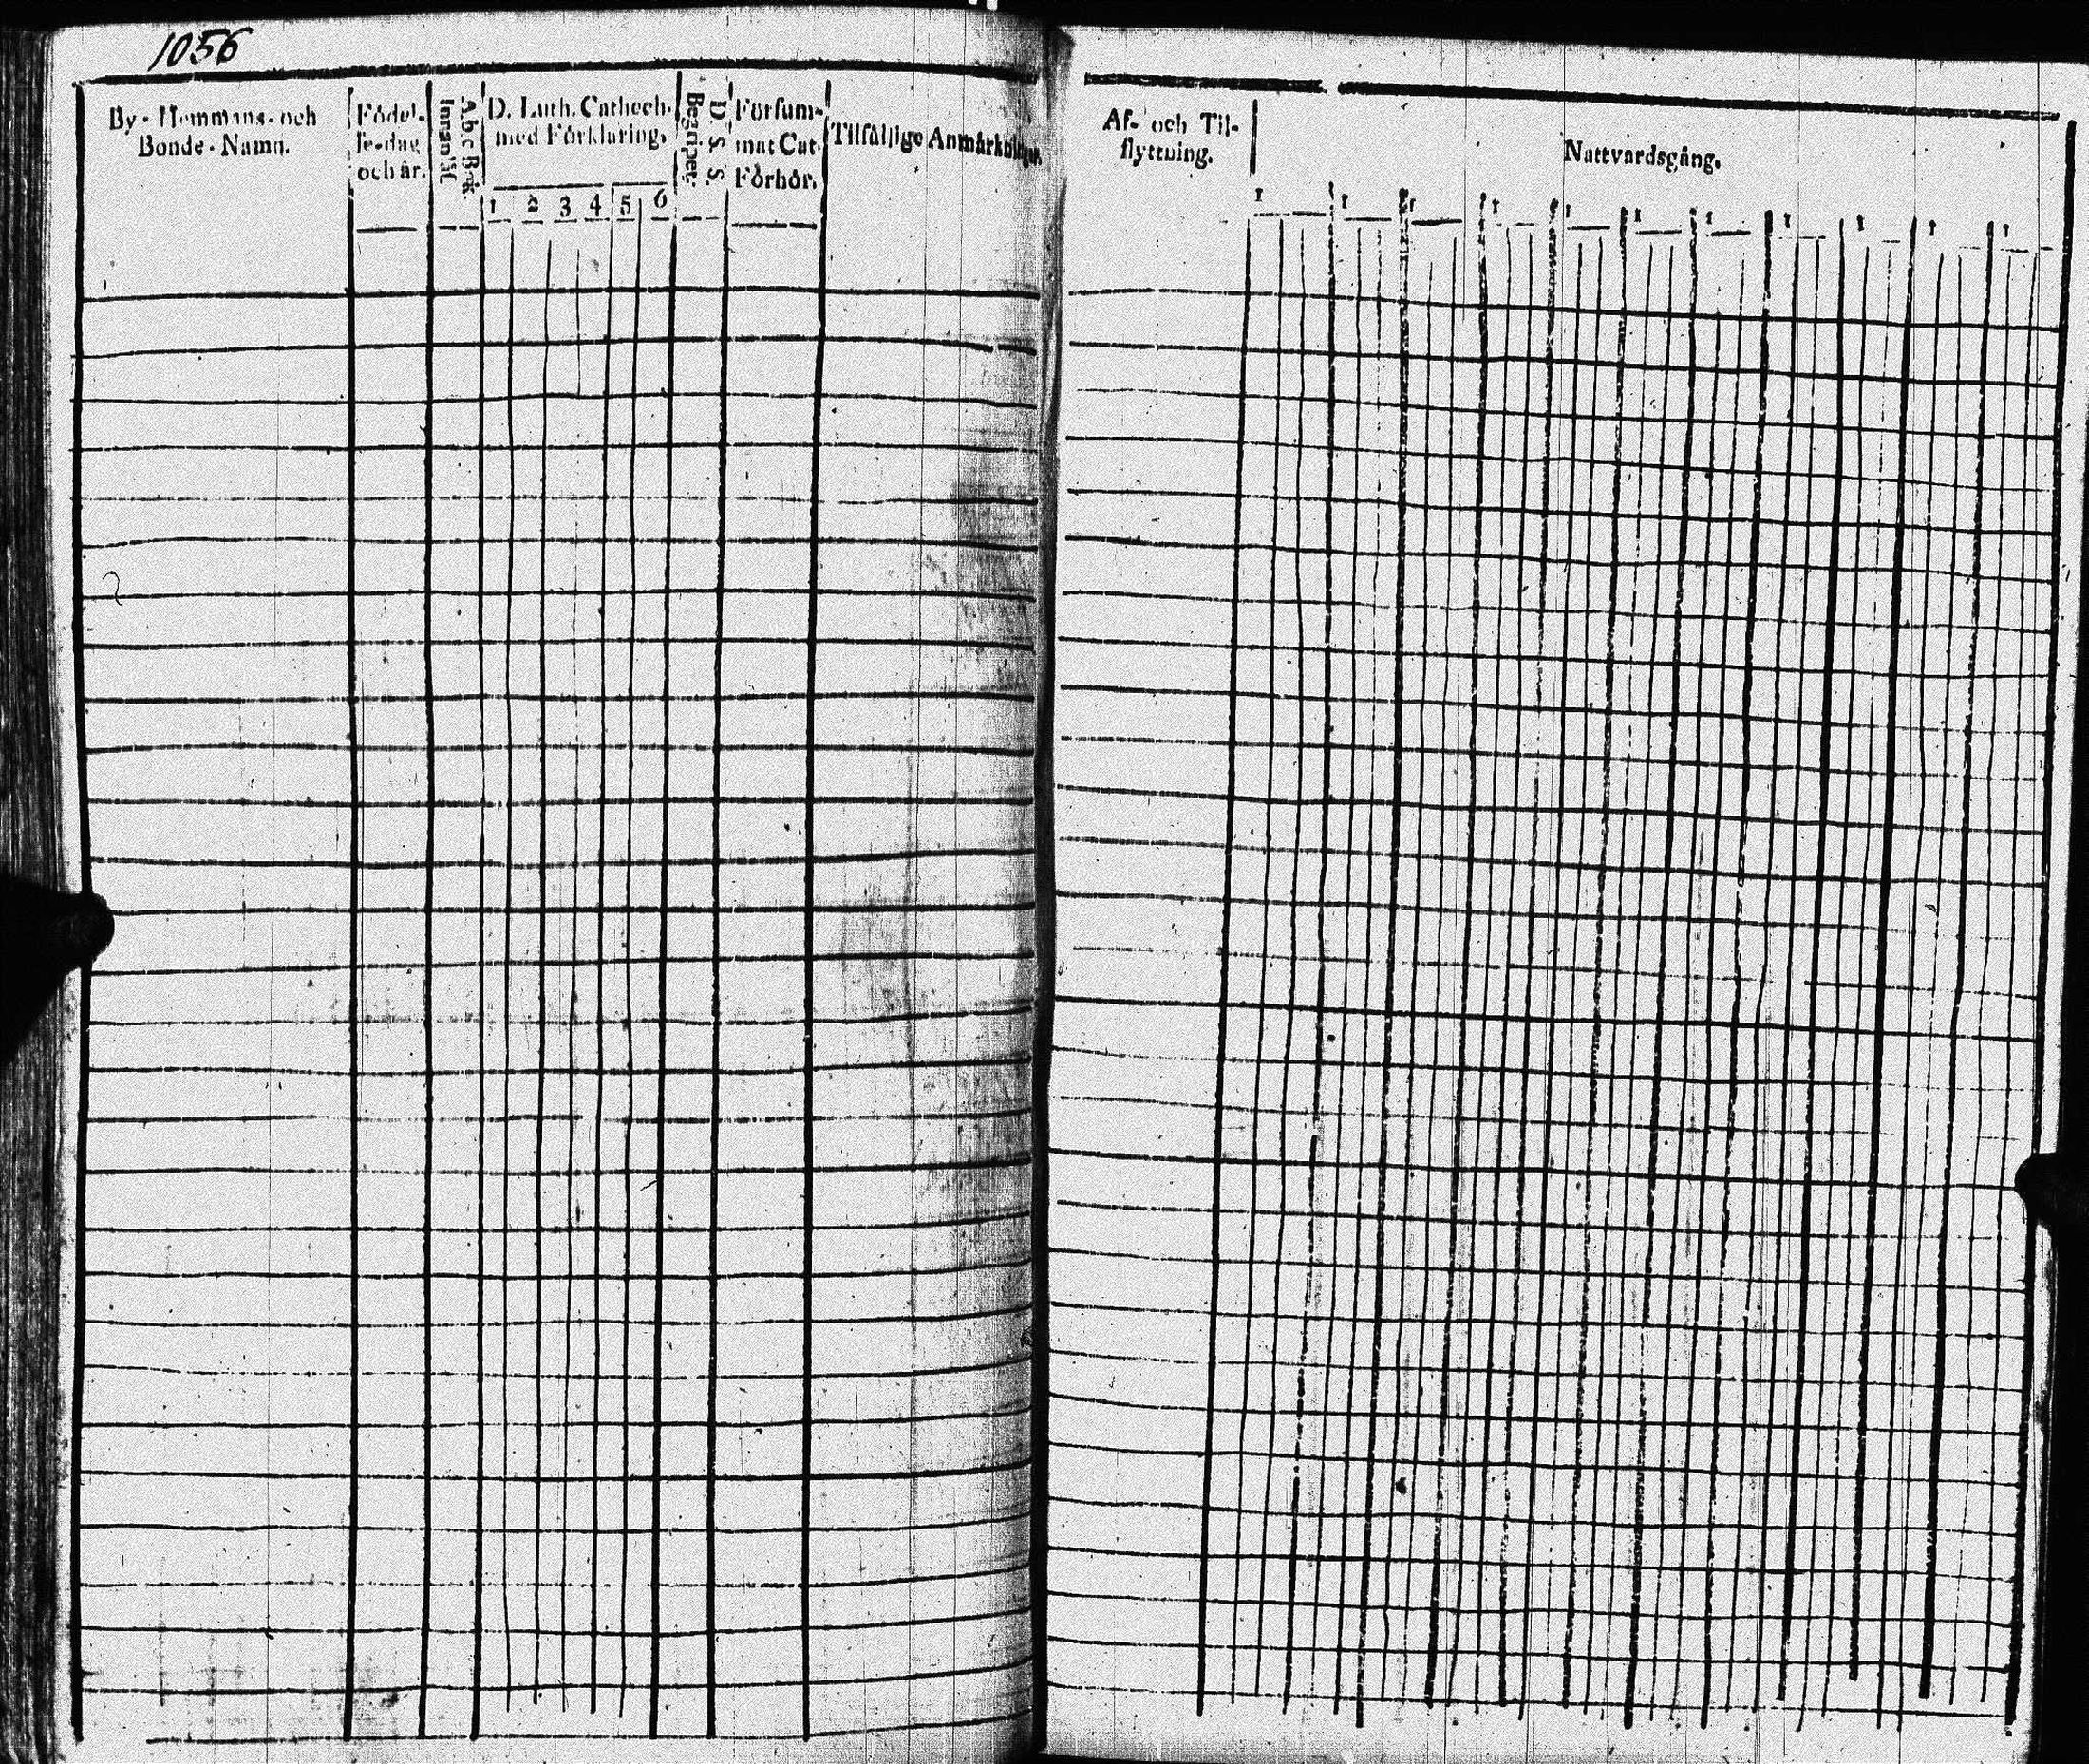 1056
By- Hemmans- och
Bonde-Namn.
Födel-
se-dag
och år.
A.b.c Bok
Innanläs.
D. Luth. Cathech.
med Förklaring.
1 2 3 4 5 6
D. S. S.
Begriper.
Försum-
mat Cat.
Förhör.
Tilfällige Anmärkningar.
Af- och Til-
flyttning.
Nattvardsgång.
1 1 1 1 1 1 1 1 1 1 1